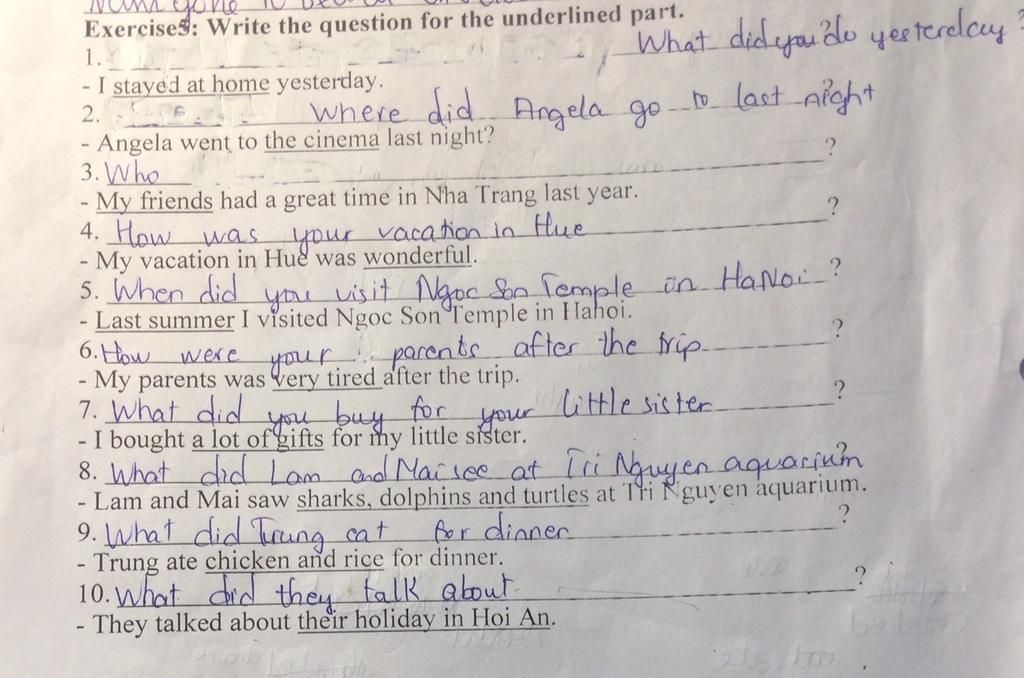 Exercise5: Write the question for the underlined part.
1. What did you do yesterday ?
- I stayed at home yesterday.
2. Where did Angela go to last night ?
- Angela went to the cinema last night?
3. Who ?
- My friends had a great time in Nha Trang last year.
4. How was your vacation in Hue ?
- My vacation in Hue was wonderful.
5. When did you visit Ngoc Son Temple in HaNoi ?
- Last summer I visited Ngoc Son Temple in Hanoi.
6. How were your parents after the trip ?
- My parents was very tired after the trip.
7. What did you buy for your little sister ?
- I bought a lot of gifts for my little sister.
8. What did Lam and Mai see at Tri Nguyen aquarium ?
- Lam and Mai saw sharks, dolphins and turtles at Tri Nguyen aquarium.
9. What did Trung eat for dinner ?
- Trung ate chicken and rice for dinner.
10. What did they talk about ?
- They talked about their holiday in Hoi An.